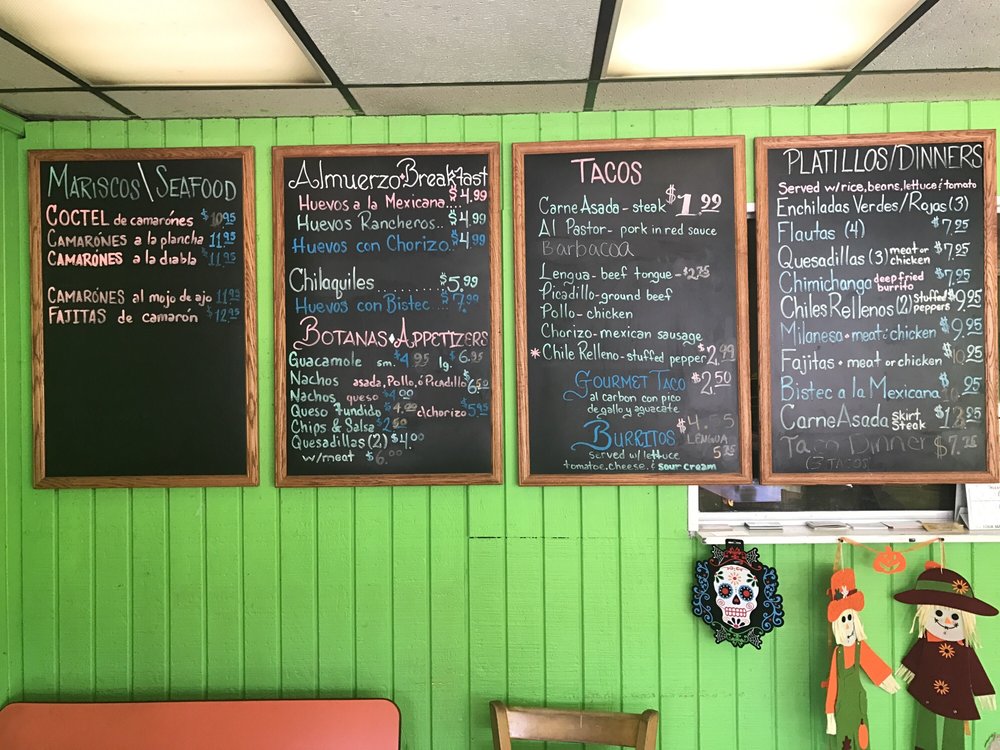 MARISCOS\SEAFOOD
COCTEL de camarónes $10.95
CAMARÓNES a la plancha 11.95
CAMARÓNES a la diabla $11.95
CAMARÓNES al mojo de ajo 11.95
FAJITAS de camarón $12.95
Almuerzo•Breakfast
Huevos a la Mexicana.... $4.99
Huevos Rancheros.. $4.99
Huevos con Chorizo. $4.99
Chilaquiles ........... $5.99
Huevos con Bistec ... $7.99
BOTANAS•APPETIZERS
Guacamole sm. $4.95 lg. $6.95
Nachos asada, Pollo, ó Picadillo $6.50
Nachos queso $4.00
Queso fundido $4.00 c\chorizo $5.95
Chips & Salsa $2.50
Quesadillas (2) $4.00
w/meat $6.00
TACOS
Carne Asada - steak $1.99
Al Pastor - pork in red sauce
Barbacoa
Lengua - beef tongue - $2.75
Picadillo - ground beef
Pollo - chicken
Chorizo - mexican sausage
* Chile Relleno - stuffed pepper $2.99
GOURMET TACO $2.50
al carbon con pico
de gallo y aguacate
BURRITOS $4.75
LENGUA 5.25
served w/ lettuce
tomatoe, cheese, & sour cream
PLATILLOS/DINNERS
Served w/rice, beans, lettuce & tomato
Enchiladas Verdes/Rojas (3)
$7.25
Flautas (4)
Quesadillas (3) meat or chicken $7.25
Chimichanga deep fried burrito $7.25
Chiles Rellenos (2) stuffed peppers $9.95
Milanesa • meat or chicken $9.95
Fajitas • meat or chicken $10.25
Bistec a la Mexicana $10.25
Carne Asada skirt steak $13.25
Taco Dinner $7.25
(3 TACOS)